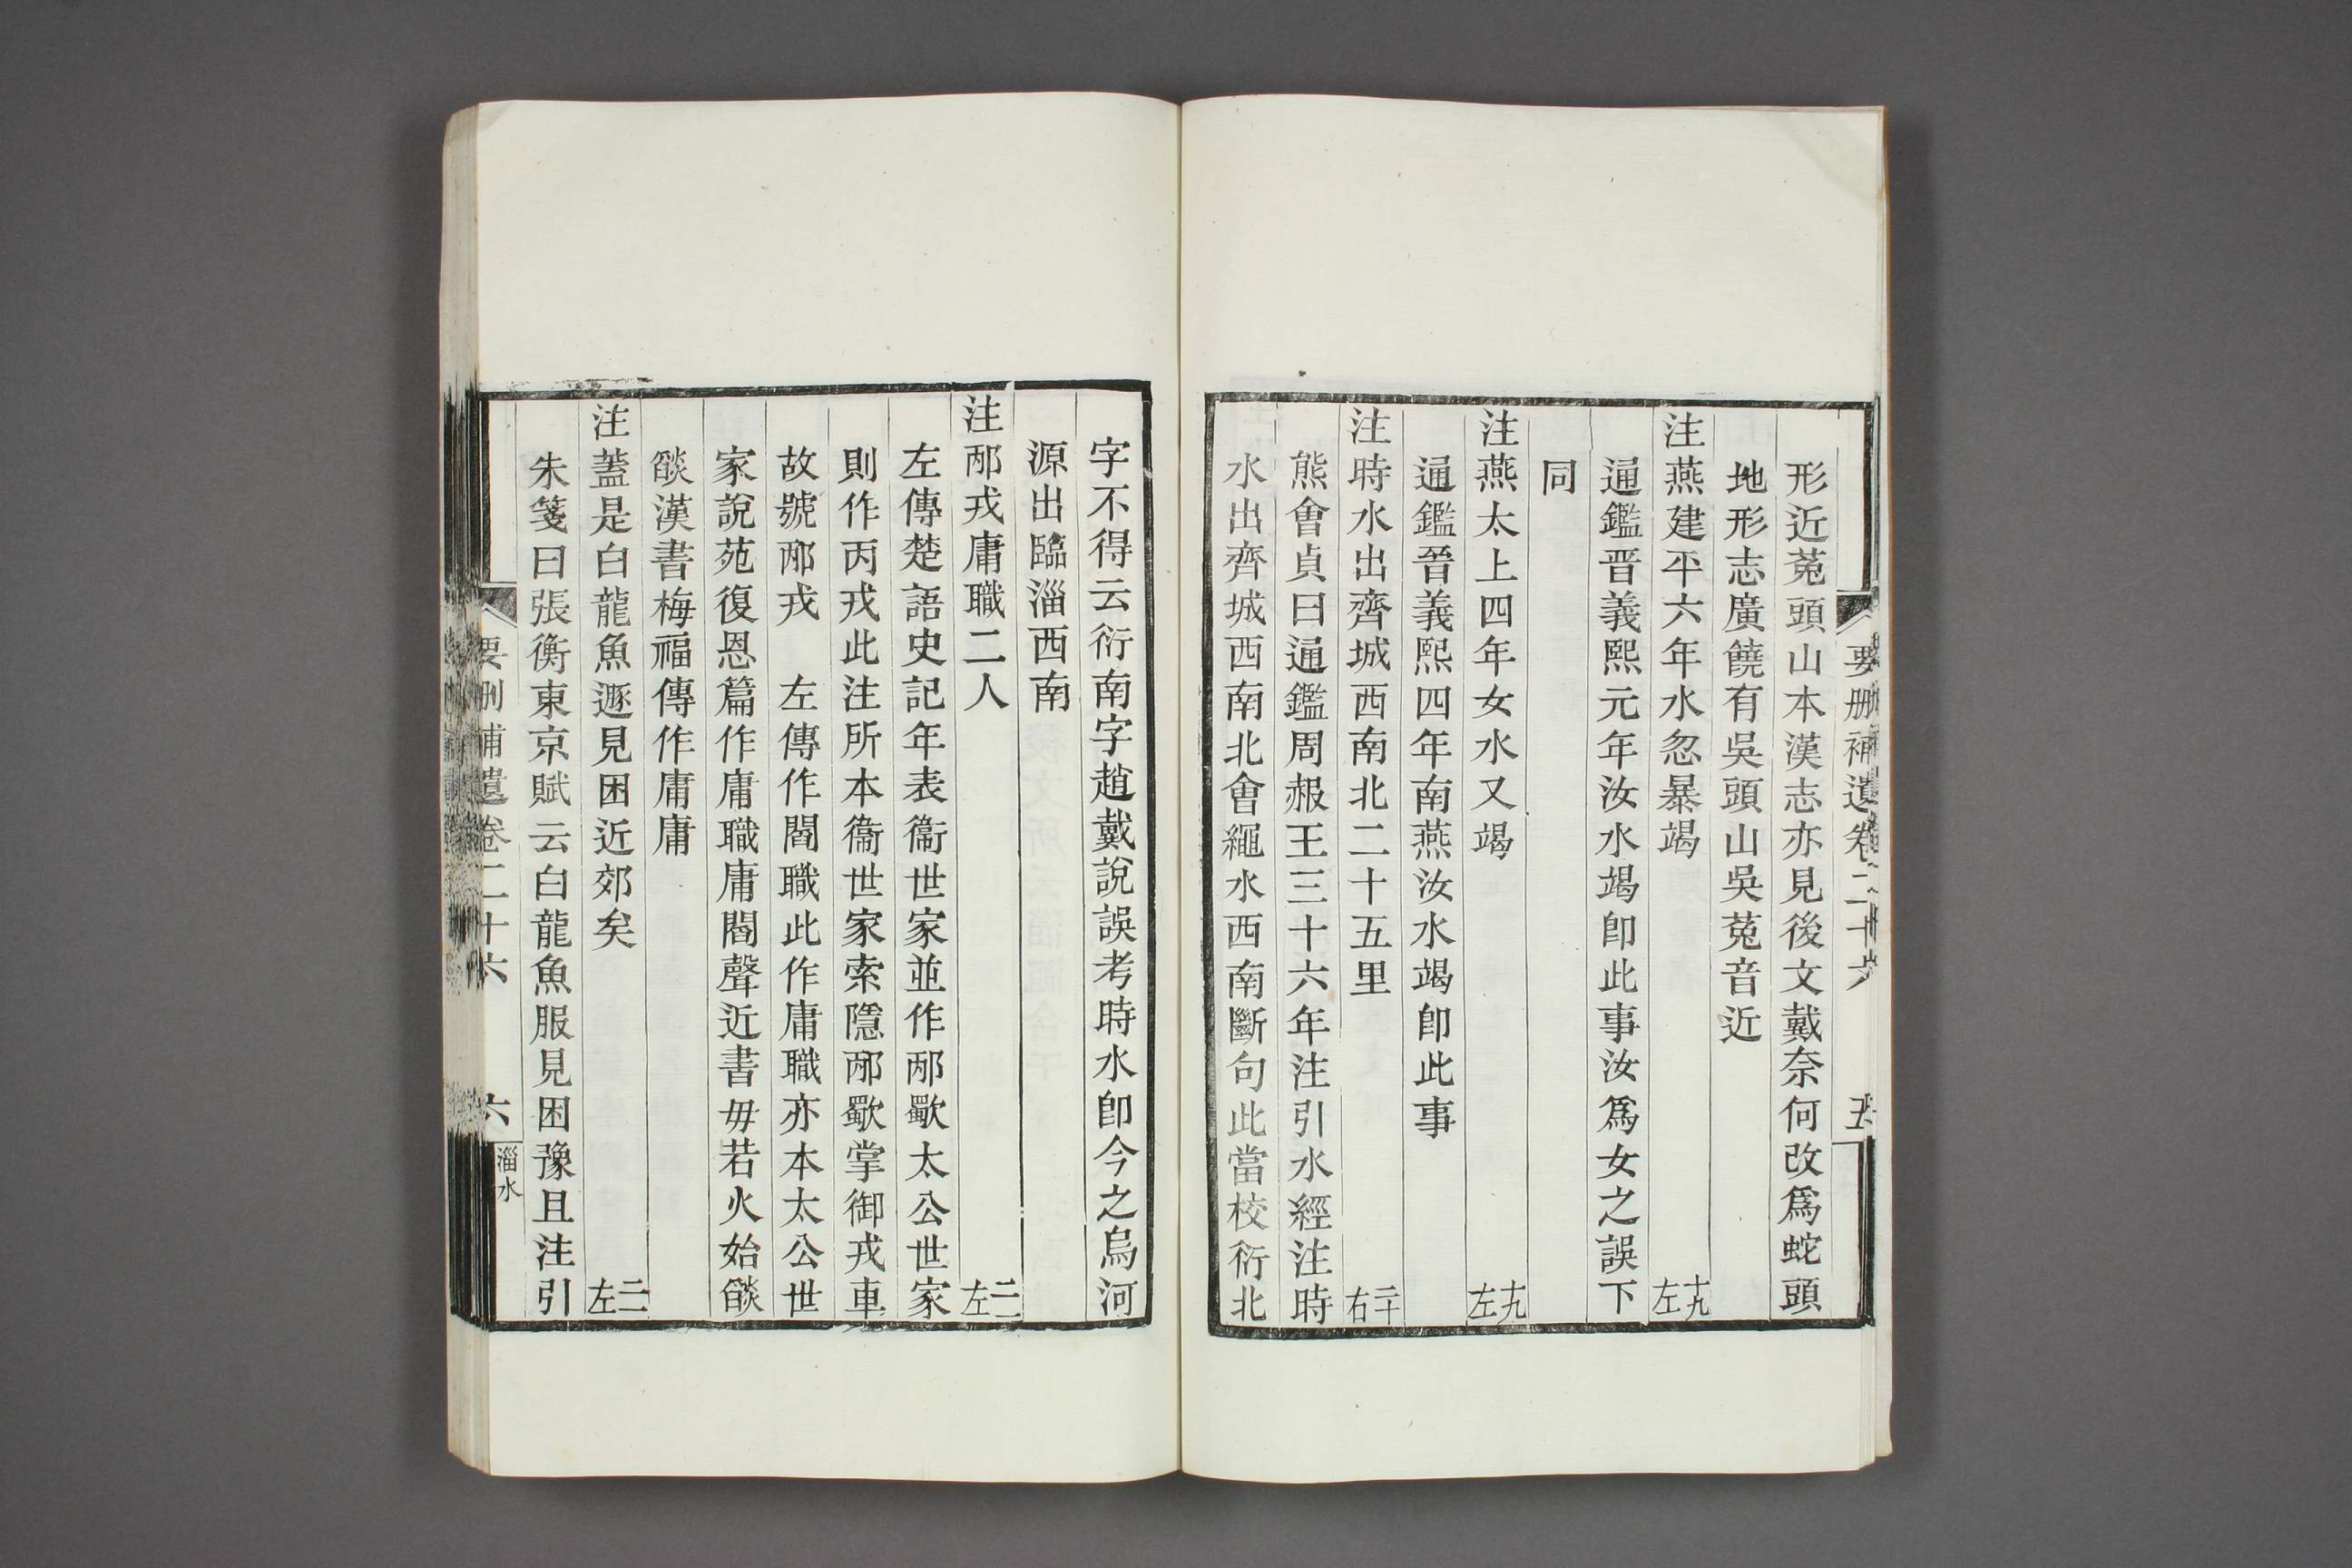 要刪補遺卷二十六 五
形近菟頭山本漢志亦見後文戴奈何改爲蛇頭
地形志廣饒有吳頭山吳菟音近
注燕建平六年水忽暴竭 十九左
通鑑晋義熙元年汝水竭卽此事汝爲女之誤下
同
注燕太上四年女水又竭 十九左
通鑑晉義熙四年南燕汝水竭卽此事
注時水出齊城西南北二十五里 二十右
熊會貞曰通鑑周赧王三十六年注引水經注時
水出齊城西南北會繩水西南斷句此當校衍北
字不得云衍南字趙戴說誤考時水卽今之烏河
源出臨淄西南
注邴戎庸職二人 二一左
左傳楚語史記年表衞世家並作邴歜太公世家
則作丙戎此注所本衞世家索隱邴歜掌御戎車
故號邴戎 左傳作閻職此作庸職亦本太公世
家說苑復恩篇作庸職庸閻聲近書毋若火始燄
燄漢書梅福傳作庸庸
注蓋是白龍魚遯見困近郊矣 二一左
朱箋曰張衡東京賦云白龍魚服見困豫且注引
要刪補遺卷二十六 六 淄水